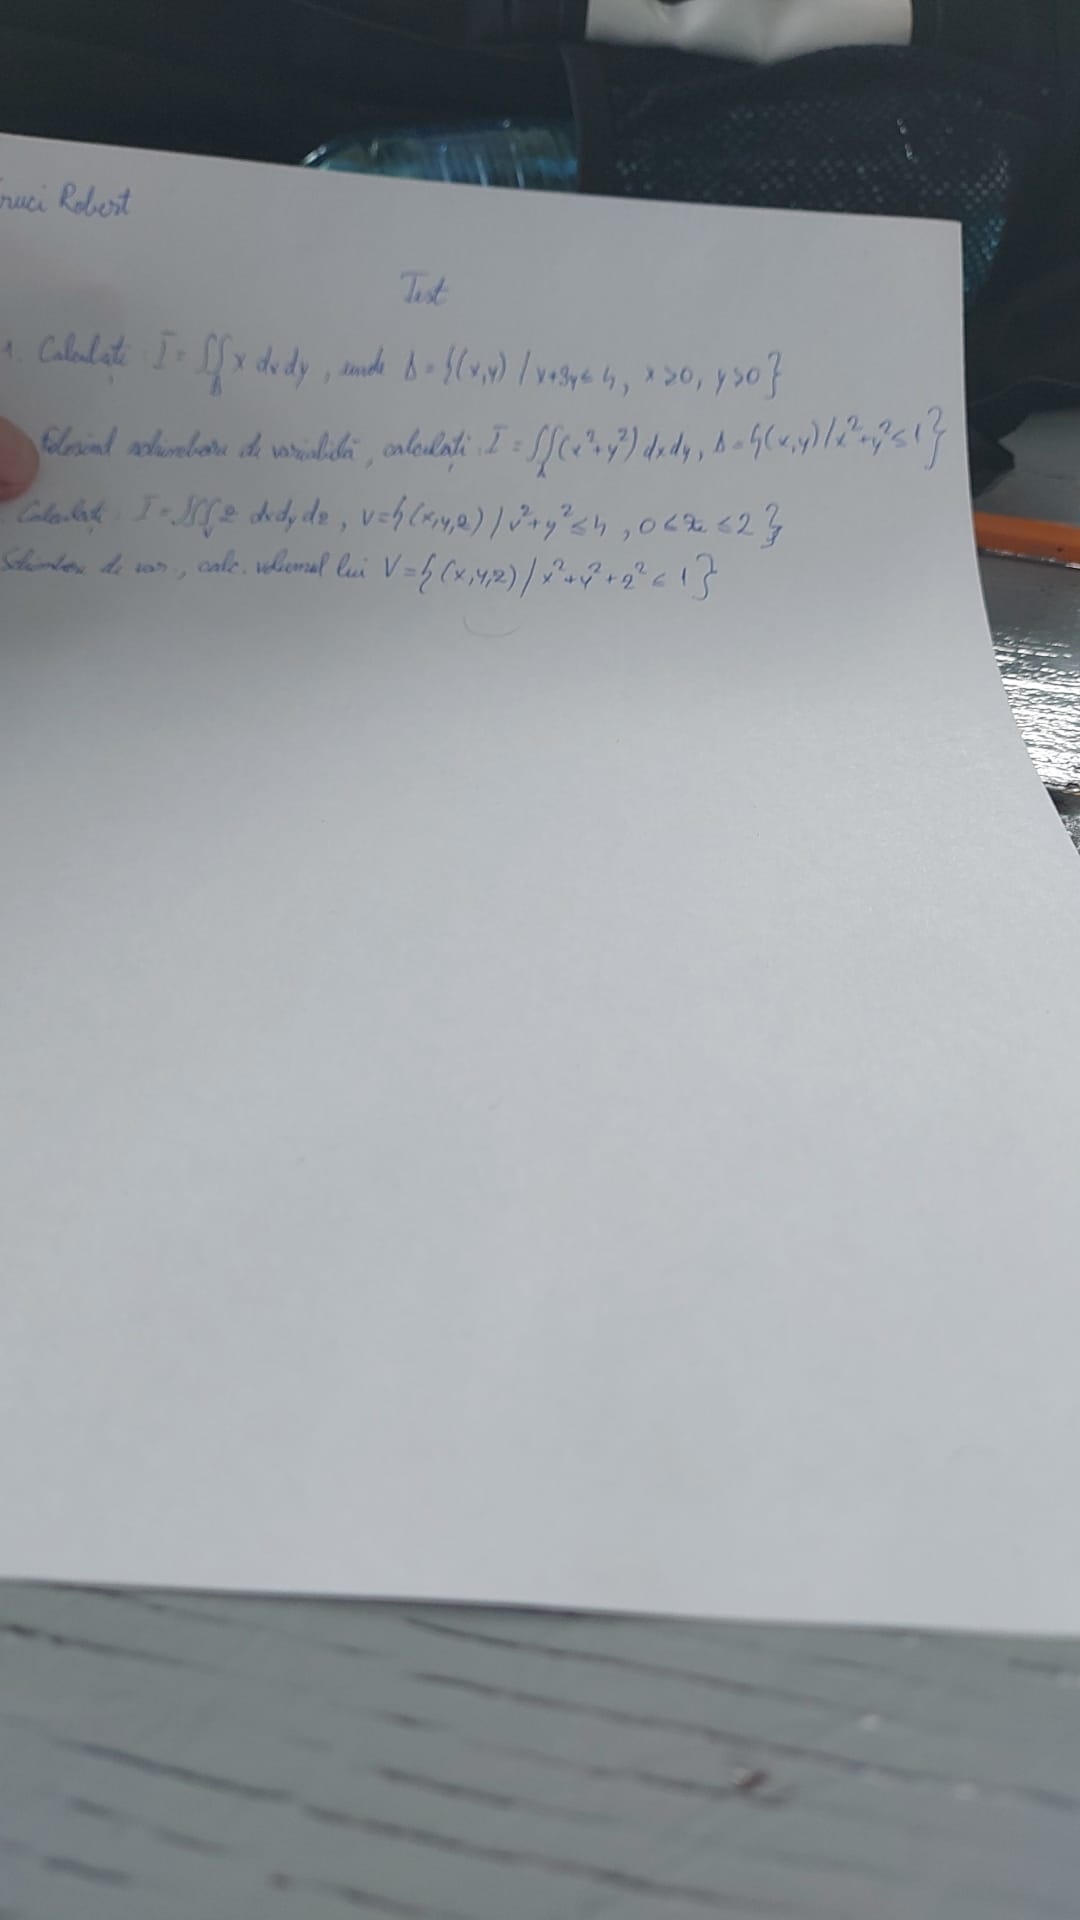 Robert
Test
1. Calculați I = ∬_D x dxdy, unde D = {(x,y) / x+3y ≤ 4, x ≥ 0, y ≥ 0}
Folosind schimbarea de variabilă, calculați I = ∬_D (x²+y²) dxdy, D = {(x,y) / x²+y² ≤ 1}
Calculați I = ∭_V z dxdydz, V = {(x,y,z) / x²+y² ≤ 4, 0 ≤ z ≤ 2}
Schimbare de var., calc. volumul lui V = {(x,y,z) / x²+y²+z² ≤ 1}